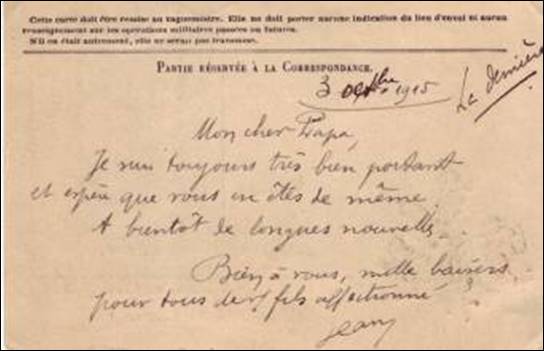 Cette carte doit être remise au vaguemestre. Elle ne doit porter aucune indication du lieu d'envoi et aucun
renseignement sur les opérations militaires passées ou futures.
S'il en était autrement, elle ne serait pas transmise.
PARTIE RÉSERVÉE À LA CORRESPONDANCE.
3 octobre 1915
La dernière
Mon cher Papa,
Je suis toujours très bien portant
et espère que vous en êtes de même.
A bientôt de longues nouvelles.
Bien à vous, mille baisers
pour tous de fils affectionné
Jean